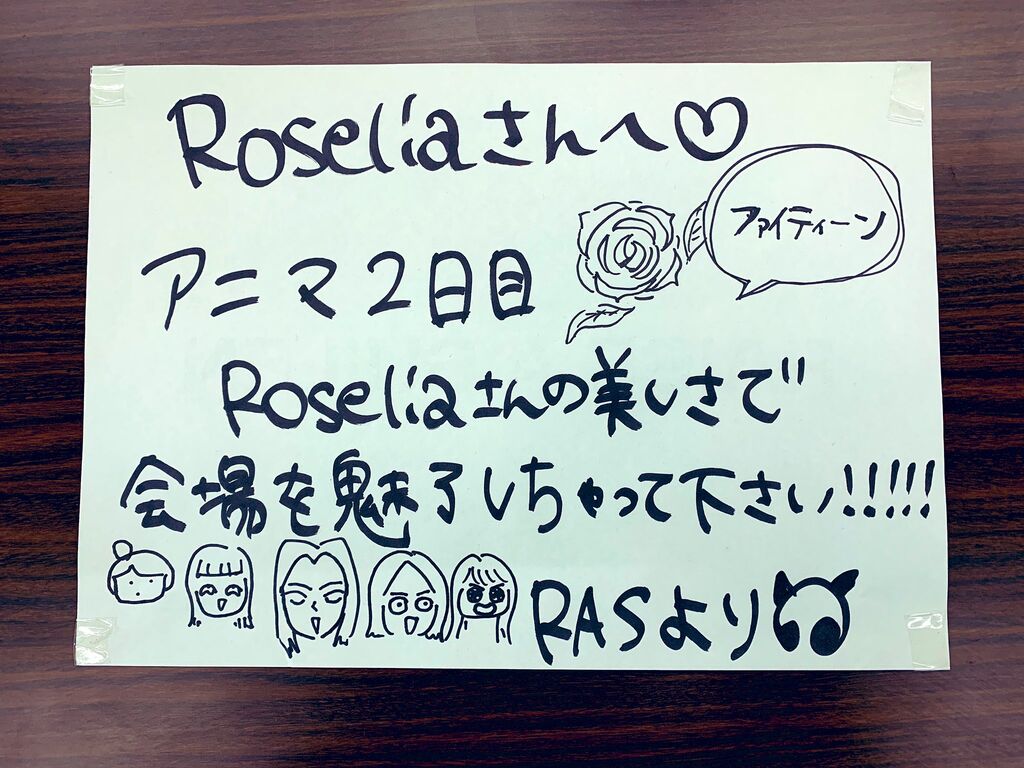 Roseliaさんへ♡
ファイティーン
アニマ2日目
Roseliaさんの美しさで
会場を魅了しちゃって下さい!!!!!
RASより